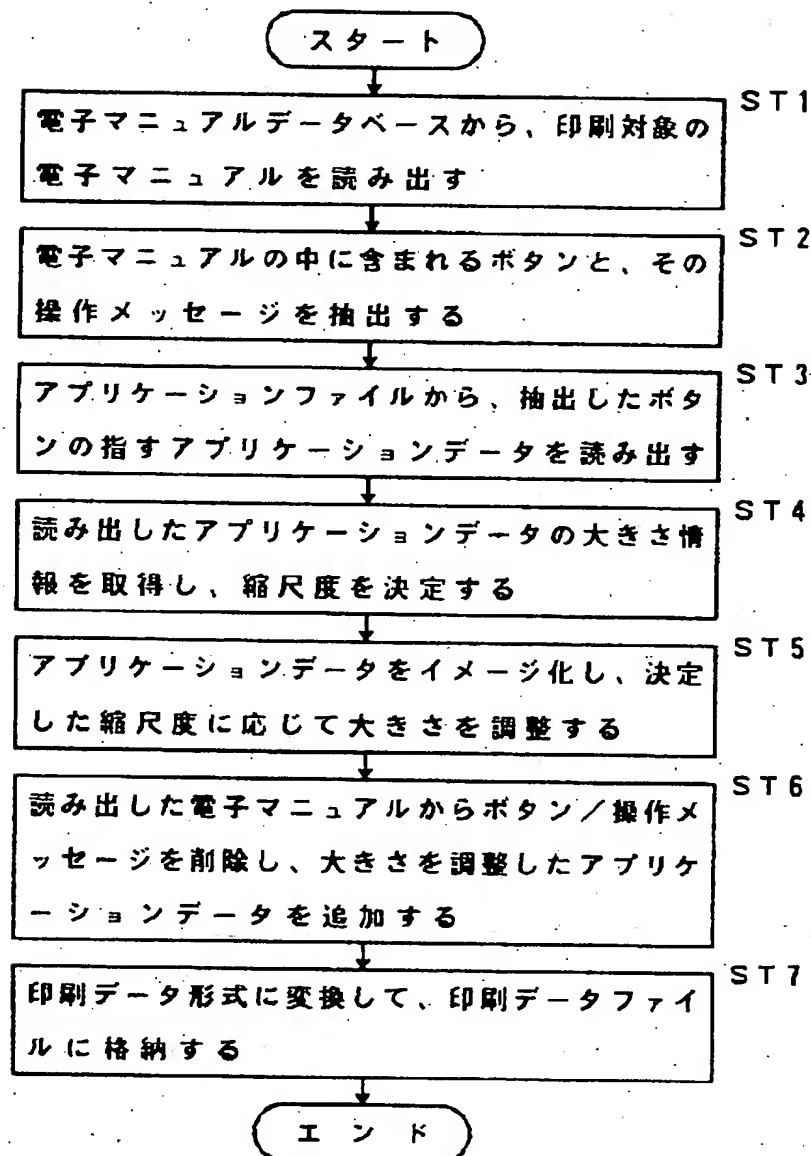 スタート
ST1
電子マニュアルデータベースから、印刷対象の
電子マニュアルを読み出す
ST2
電子マニュアルの中に含まれるボタンと、その
操作メッセージを抽出する
ST3
アプリケーションファイルから、抽出したボタ
ンの指すアプリケーションデータを読み出す
ST4
読み出したアプリケーションデータの大きさ情
報を取得し、縮尺度を決定する
ST5
アプリケーションデータをイメージ化し、決定
した縮尺度に応じて大きさを調整する
ST6
読み出した電子マニュアルからボタン/操作メ
ッセージを削除し、大きさを調整したアプリケ
ーションデータを追加する
ST7
印刷データ形式に変換して、印刷データファイ
ルに格納する
エンド